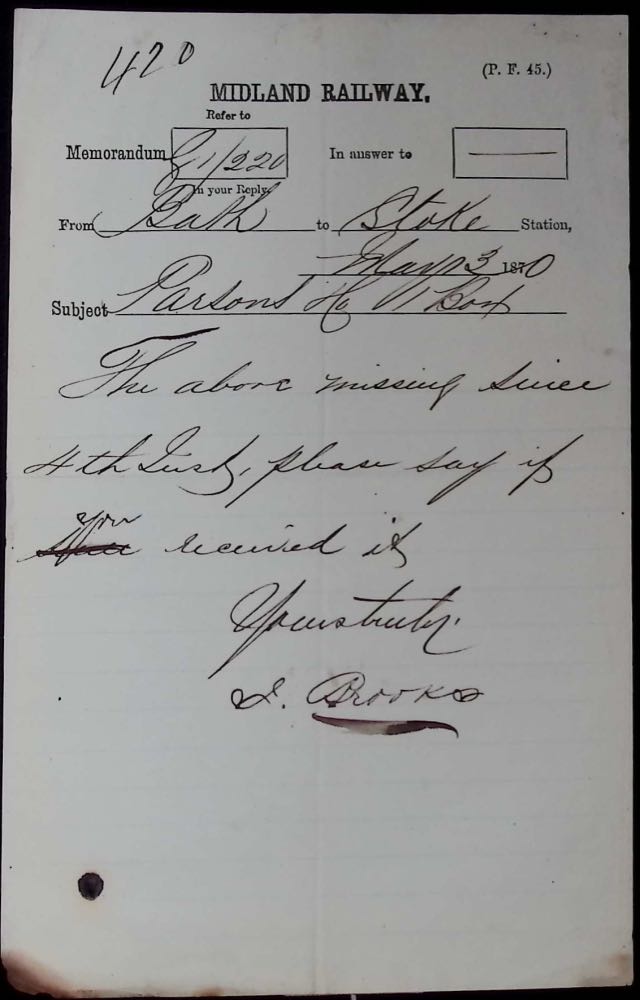 420
(P. F. 45.)
MIDLAND RAILWAY.
Refer to
Memorandum G 1/220 In answer to —
in your Reply.
From Bath to Stoke Station,
May 13 1870
Subject Parsons Ho 1 Box
The above missing since
4th Inst, please say if
you received it
Yours truly
J. Brooks